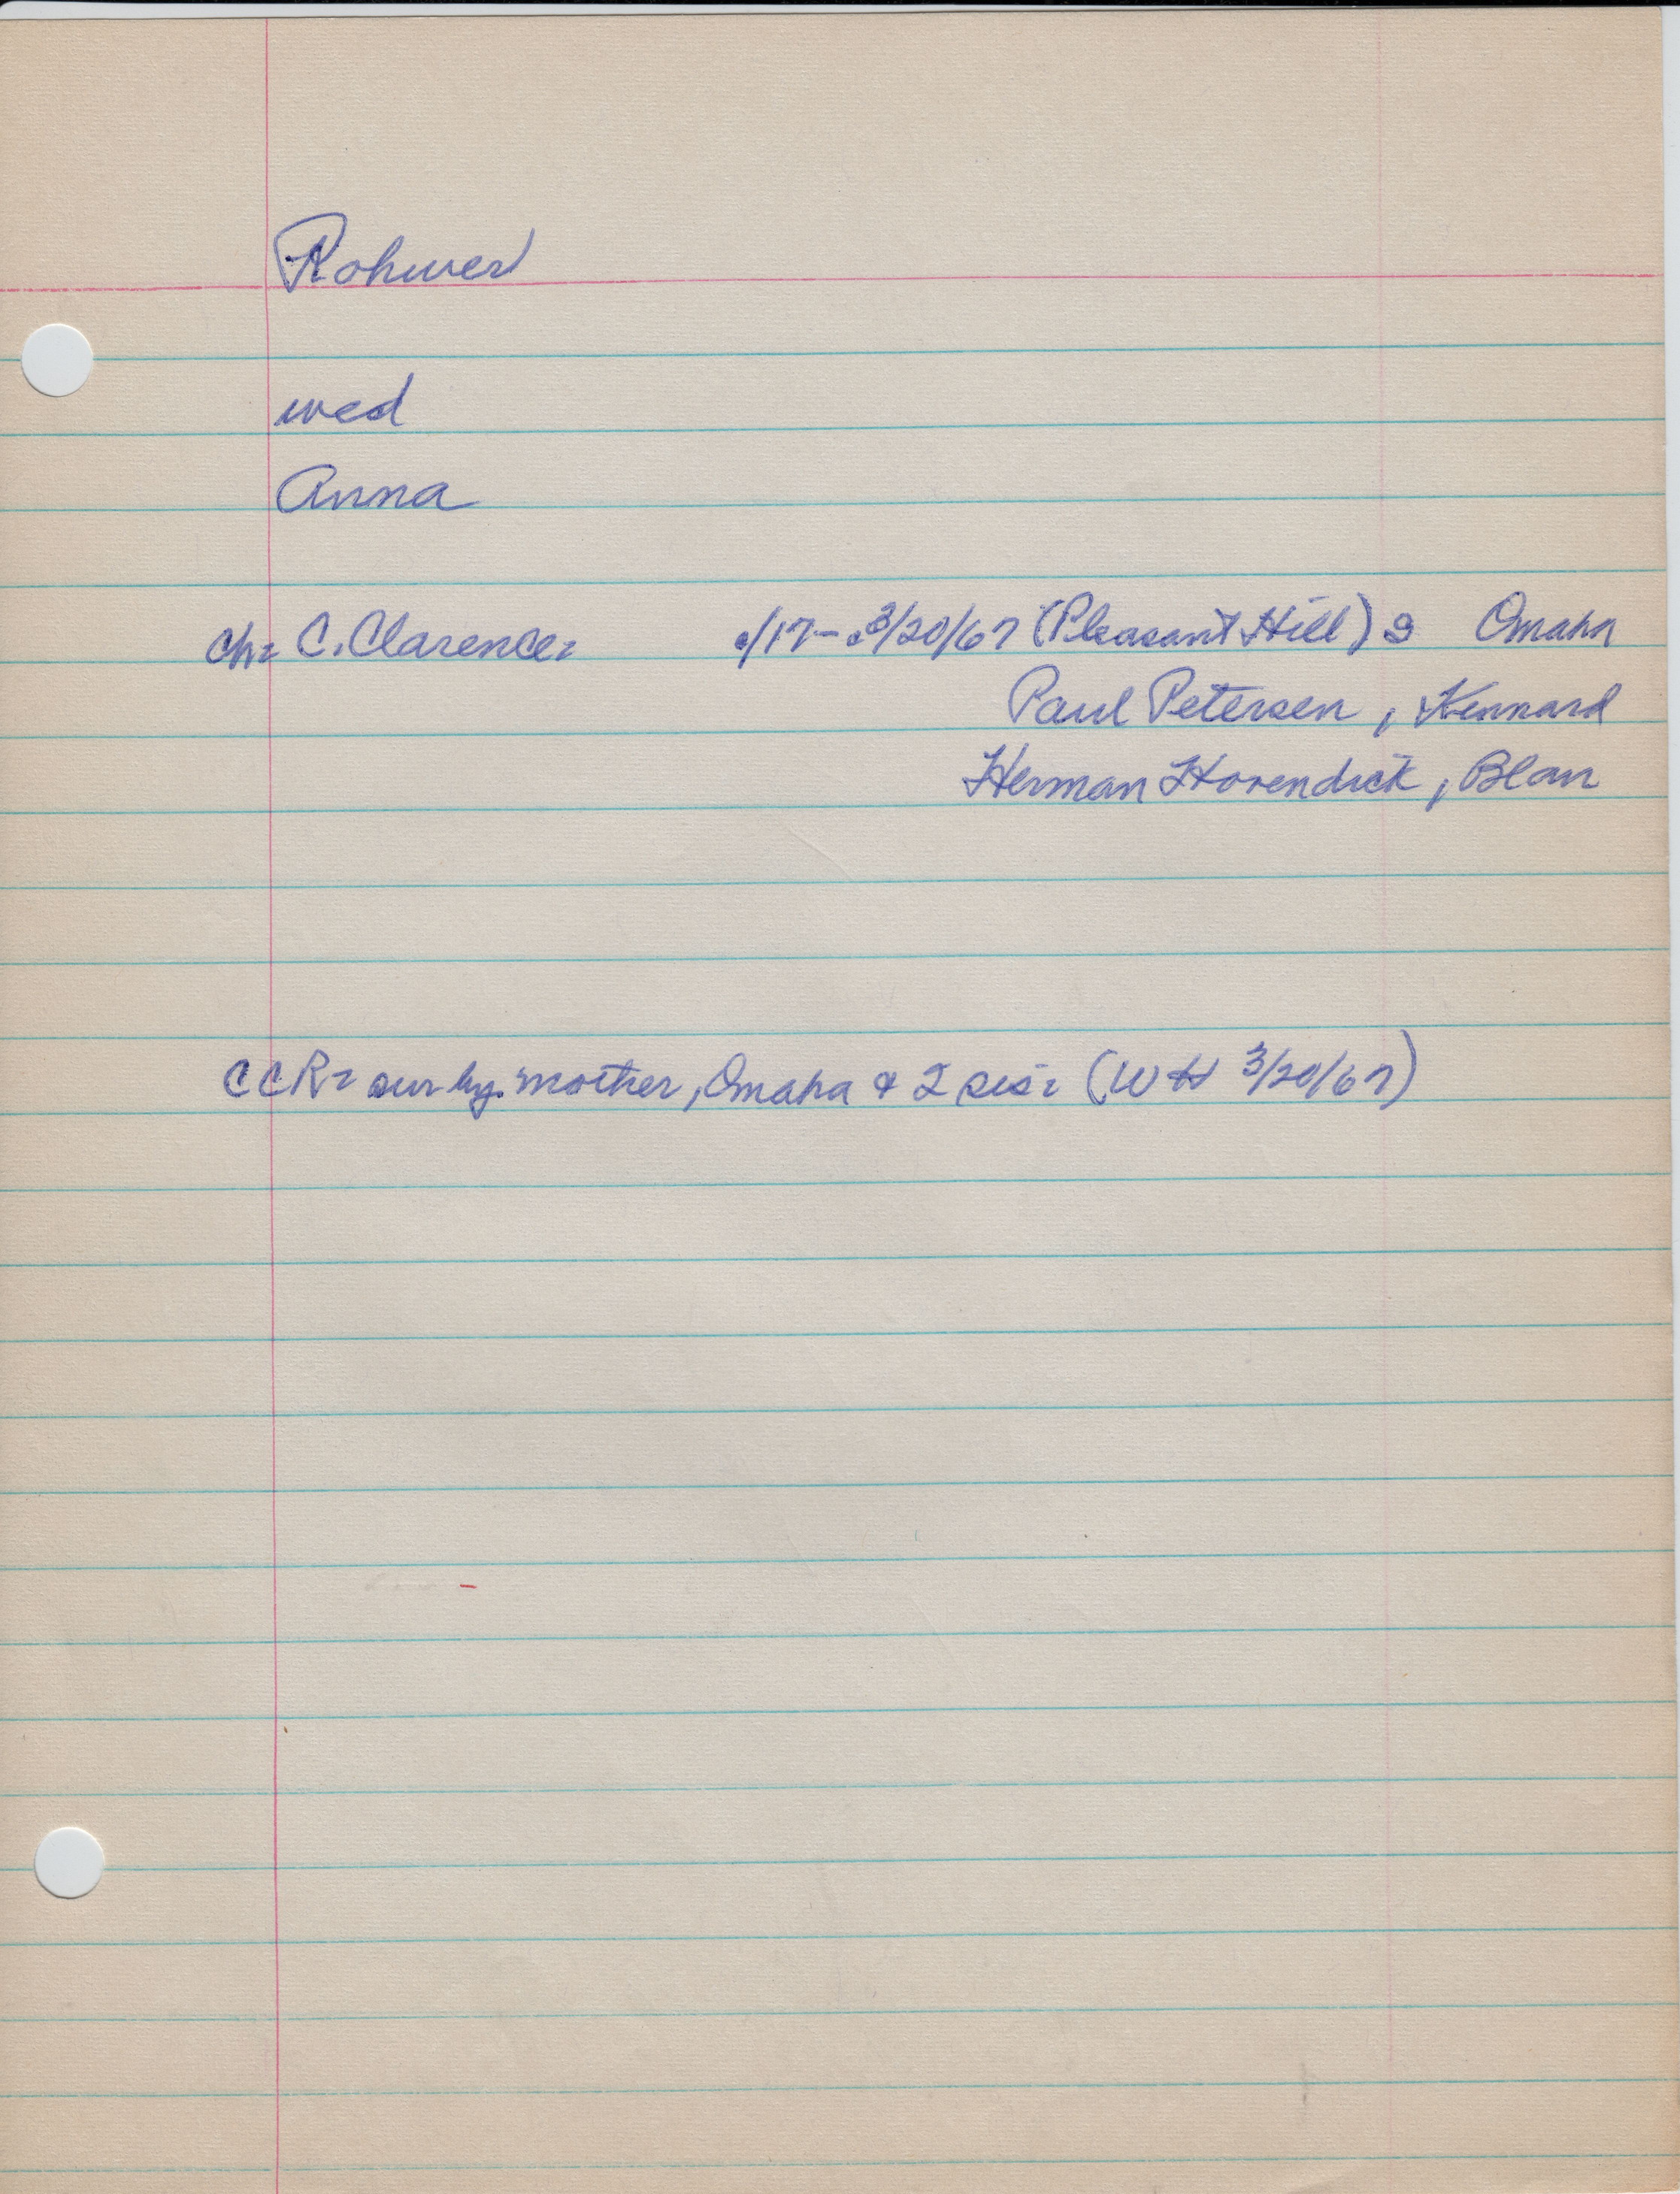 Rohwer
wed
Anna
ch: C. Clarence: /17- 3/20/67 (Pleasant Hill) s Omaha
Paul Petersen, Kennard
Herman Hovendick, Blair
CCR: sur by mother, Omaha & 2 sis: (WH 3/20/67)